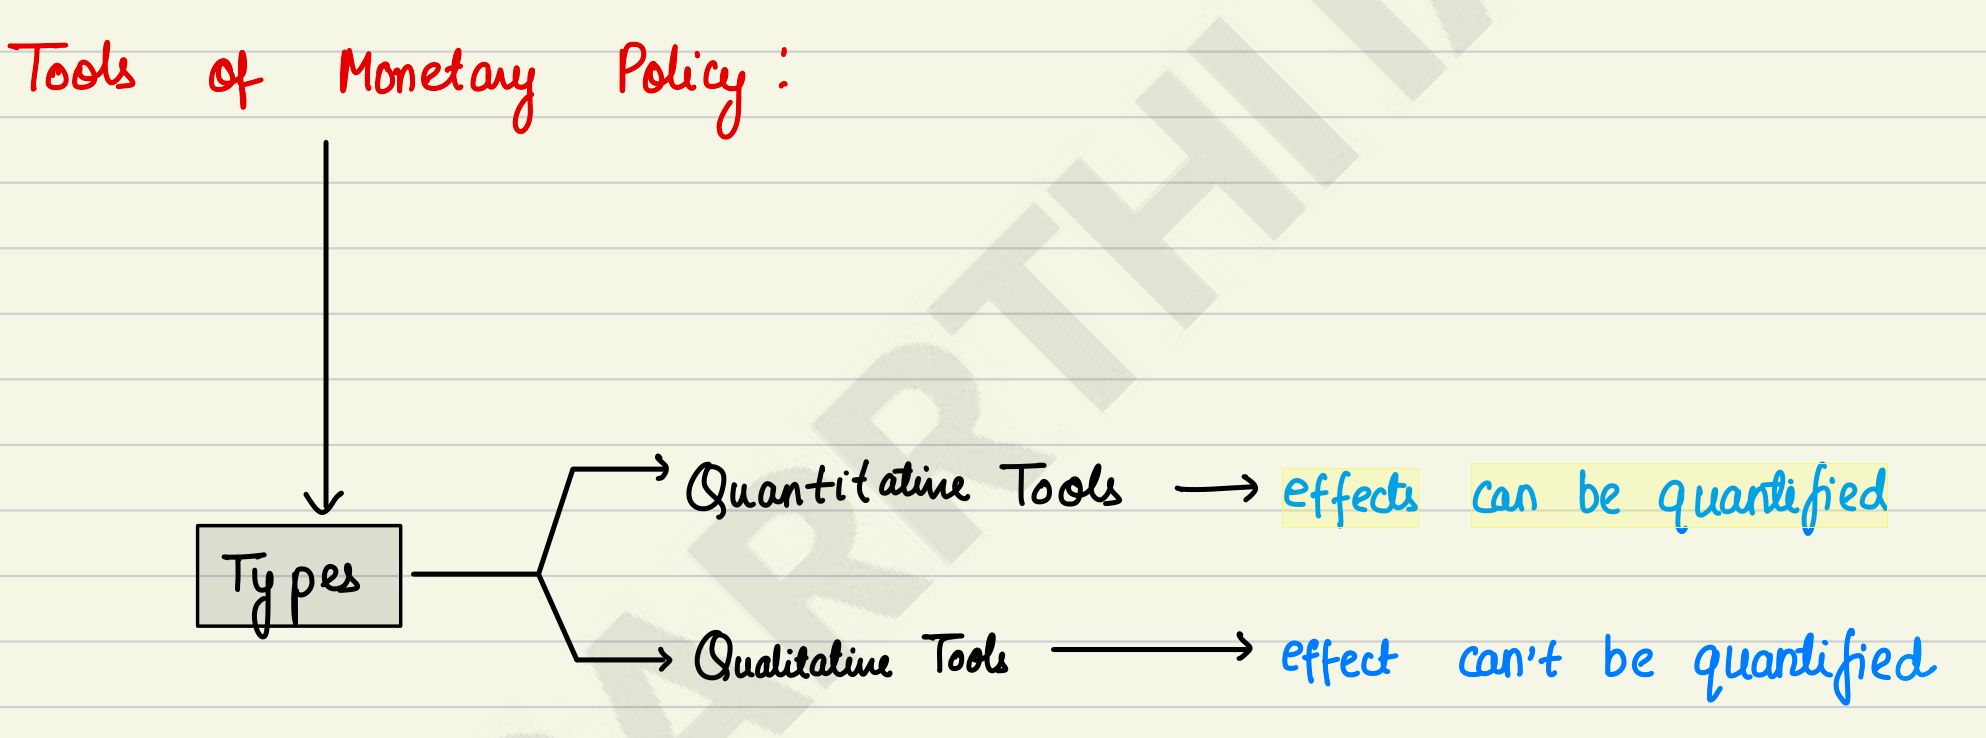 Tools of Monetary Policy:
Quantitative Tools → effects can be quantified
Types
Qualitative Tools → effect can't be quantified